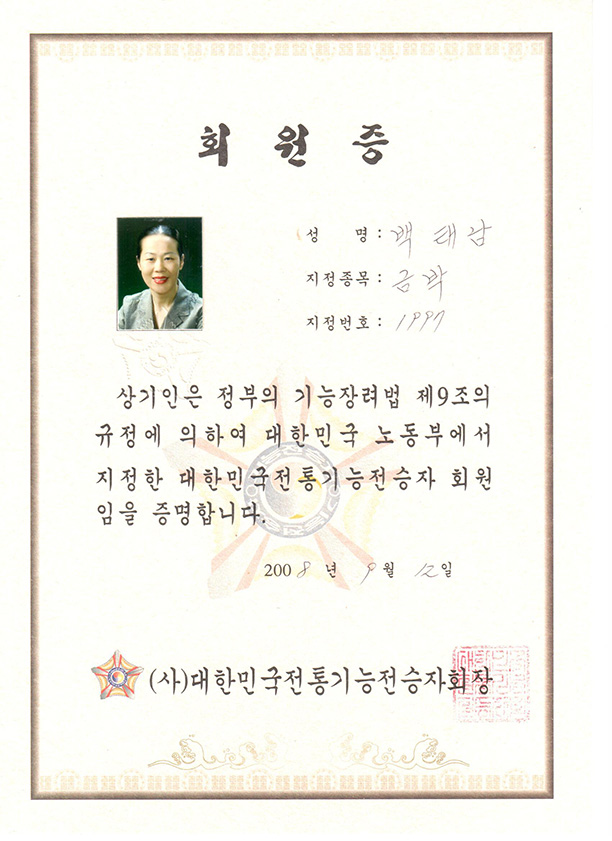 회원증
성 명 : 백태남
지정종목 : 금박
지정번호 : 1997
상기인은 정부의 기능장려법 제9조의
규정에 의하여 대한민국 노동부에서
지정한 대한민국전통기능전승자 회원
임을 증명합니다.
2008년 9월 12일
(사)대한민국전통기능전승자회장